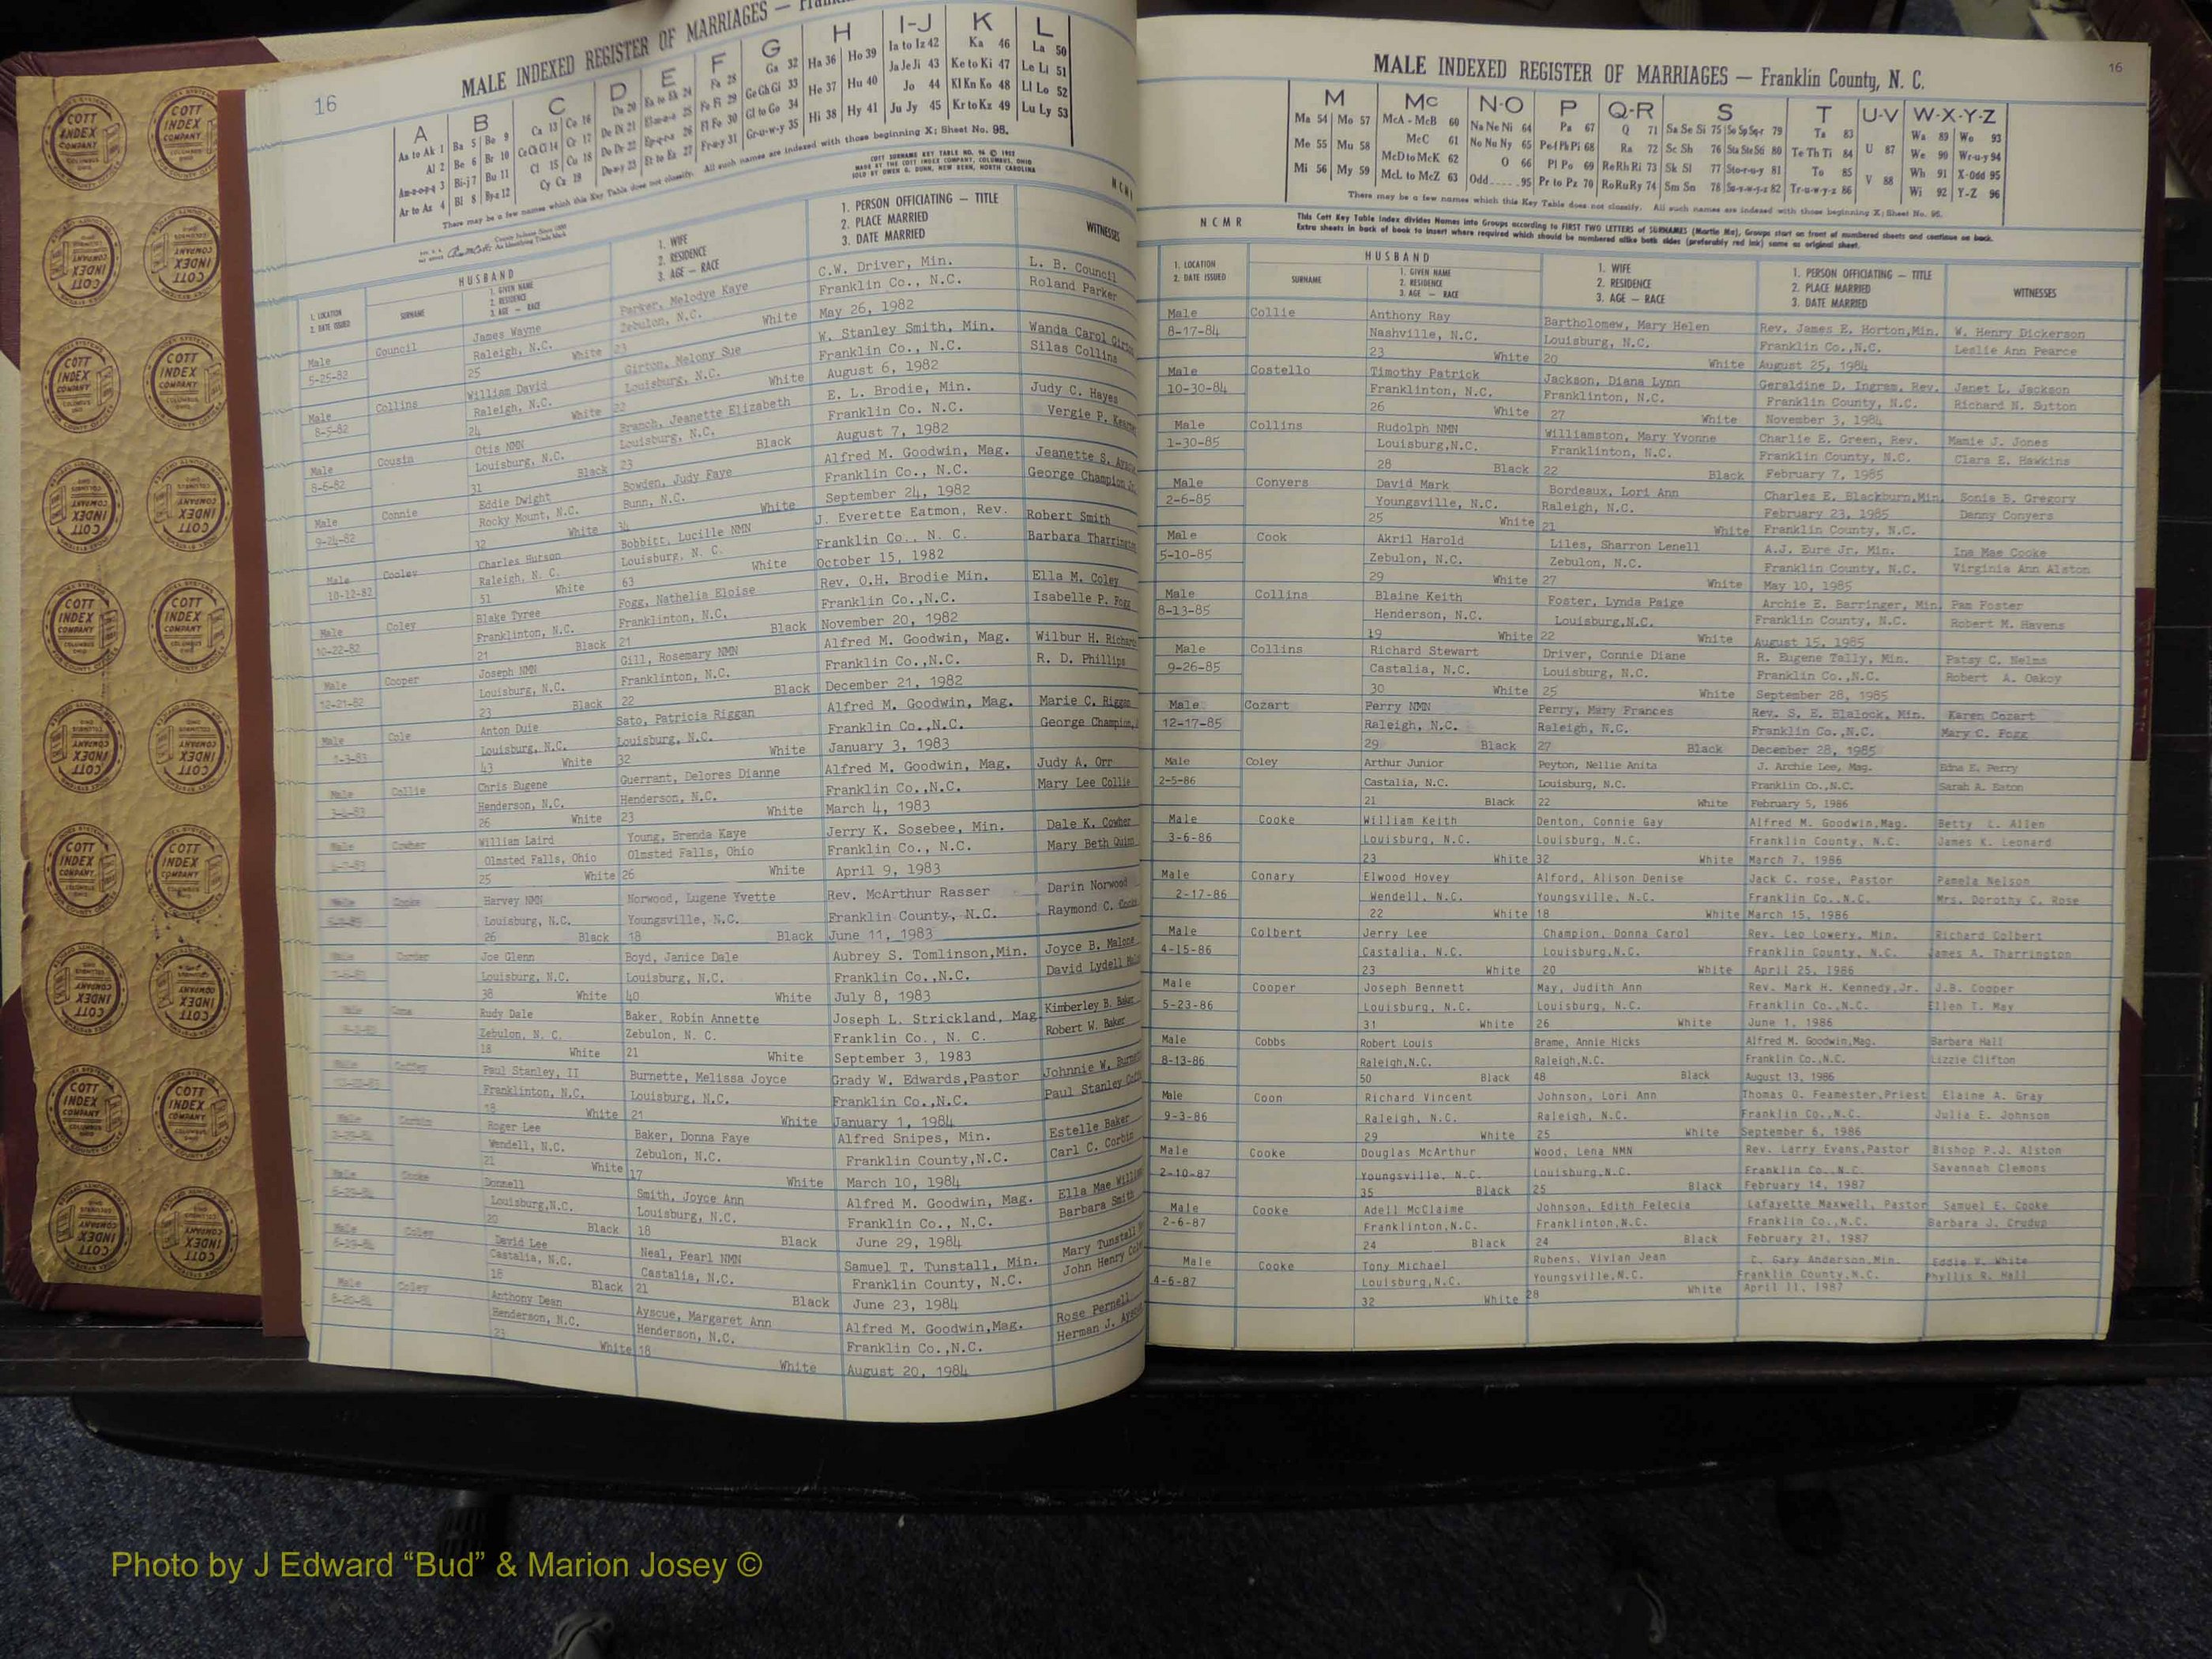 16
MALE INDEXED REGISTER OF MARRIAGES —
A B C D E F G H I-J K L
Aa to Ak 1 Ba 5 Be 9 Ca 13 Co 16 Ga 32 Ha 36 Ho 39 Ia to Iz 42 Ka 46 La 50
Al 2 Be 6 Br 10 Cr 17 He 37 Hu 40 Ja Je Ji 43 Ke to Ki 47 Le Li 51
Bi-j 7 Bu 11 Cl 15 Cu 18 Gl to Go 34 Hi 38 Hy 41 Jo 44 Kl Kn Ko 48 Ll Lo 52
Ar to Az 4 Bl 8 By-z 12 Cy Cz 19 Ju Jy 45 Kr to Kz 49 Lu Ly 53
There may be a few names which this Key Table does not classify. All such names are indexed with those beginning X; Sheet No. 95.
HUSBAND
1. LOCATION
2. DATE ISSUED
SURNAME
1. GIVEN NAME
2. RESIDENCE
3. AGE — RACE
1. WIFE
2. RESIDENCE
3. AGE — RACE
1. PERSON OFFICIATING — TITLE
2. PLACE MARRIED
3. DATE MARRIED
WITNESSES
Male Council James Wayne Parker, Melodye Kaye C.W. Driver, Min. L. B. Council
5-25-82 Raleigh, N.C. Zebulon, N.C. Franklin Co., N.C. Roland Parker
25 White 23 White May 26, 1982
Male Collins William David Girton, Melony Sue W. Stanley Smith, Min. Wanda Carol Girton
8-5-82 Raleigh, N.C. Louisburg, N.C. Franklin Co., N.C. Silas Collins
24 White 22 White August 6, 1982
Male Cousin Otis NMN Branch, Jeanette Elizabeth E. L. Brodie, Min. Judy C. Hayes
8-6-82 Louisburg, N.C. Louisburg, N.C. Franklin Co. N.C. Vergie P.
31 Black 23 Black August 7, 1982
Male Connie Eddie Dwight Bowden, Judy Faye Alfred M. Goodwin, Mag. Jeanette S.
9-24-82 Rocky Mount, N.C. Bunn, N.C. Franklin Co., N.C. George Champion Jr.
32 White 34 White September 24, 1982
Male Cooley Charles Hutson Bobbitt, Lucille NMN J. Everette Eatmon, Rev. Robert Smith
10-12-82 Raleigh, N. C. Louisburg, N. C. Franklin Co., N. C. Barbara Tharrington
51 White 63 White October 15, 1982
Male Coley Blake Tyree Fogg, Nathelia Eloise Rev. O.H. Brodie Min. Ella M. Coley
10-22-82 Franklinton, N.C. Franklinton, N.C. Franklin Co.,N.C. Isabelle P. Fogg
21 Black 21 Black November 20, 1982
Male Cooper Joseph NMN Gill, Rosemary NMN Alfred M. Goodwin, Mag. Wilbur H.
12-21-82 Louisburg, N.C. Franklinton, N.C. Franklin Co.,N.C. R. D. Phillips
23 Black 22 Black December 21, 1982
Male Cole Anton Duie Sato, Patricia Riggan Alfred M. Goodwin, Mag. Marie C. Riggan
1-3-83 Louisburg, N.C. Louisburg, N.C. Franklin Co.,N.C. George Champion,
43 White 32 White January 3, 1983
Male Collie Chris Eugene Guerrant, Delores Dianne Alfred M. Goodwin, Mag. Judy A. Orr
3-4-83 Henderson, N.C. Henderson, N.C. Franklin Co.,N.C. Mary Lee Collie
26 White 23 White March 4, 1983
Male Cowher William Laird Young, Brenda Kaye Jerry K. Sosebee, Min. Dale K. Cowher
Olmsted Falls, Ohio Olmsted Falls, Ohio Franklin Co., N.C. Mary Beth Quinn
25 White 26 White April 9, 1983
Male Cooke Harvey NMN Norwood, Lugene Yvette Rev. McArthur Rasser Darin Norwood
Louisburg, N.C. Youngsville, N.C. Franklin County, N.C. Raymond C.
26 Black 18 Black June 11, 1983
Male Joe Glenn Boyd, Janice Dale Aubrey S. Tomlinson,Min. Joyce B. Malone
Louisburg, N.C. Louisburg, N.C. Franklin Co.,N.C. David Lydell
38 White 40 White July 8, 1983
Male Rudy Dale Baker, Robin Annette Joseph L. Strickland, Mag Kimberley B. Baker
Zebulon, N. C. Zebulon, N. C. Franklin Co., N. C. Robert W. Baker
18 White 21 White September 3, 1983
Male Paul Stanley, II Burnette, Melissa Joyce Grady W. Edwards,Pastor Johnnie W.
Franklinton, N.C. Louisburg, N.C. Franklin Co.,N.C. Paul Stanley
18 White 21 White January 1, 1984
Male Corbin Roger Lee Baker, Donna Faye Alfred Snipes, Min. Estelle Baker
Wendell, N.C. Zebulon, N.C. Franklin County,N.C. Carl C. Corbin
21 White 17 White March 10, 1984
Male Cooke Donnell Smith, Joyce Ann Alfred M. Goodwin, Mag. Ella Mae
Louisburg,N.C. Louisburg, N.C. Franklin Co., N.C. Barbara Smith
20 Black 18 Black June 29, 1984
Male Coley David Lee Neal, Pearl NMN Samuel T. Tunstall, Min. Mary Tunstall
Castalia, N.C. Castalia, N.C. Franklin County, N.C. John Henry
18 Black 21 Black June 23, 1984
Male Coley Anthony Dean Ayscue, Margaret Ann Alfred M. Goodwin,Mag. Rose Pernell
8-20-84 Henderson, N.C. Henderson, N.C. Franklin Co.,N.C. Herman J.
23 White 18 White August 20, 1984
16
MALE INDEXED REGISTER OF MARRIAGES — Franklin County, N. C.
M Mc N-O P Q-R S T U-V W-X-Y-Z
Ma 54 Mo 57 McA - McB 60 Na Ne Ni 64 Pa 67 Q 71 Sa Se Si 75 Se Sp Sq-r 79 Ta 83 Wa 89 Wo 93
Me 55 Mu 58 McC 61 No Nu Ny 65 Pe-f Ph Pi 68 Ra 72 Sc Sh 76 Sta Ste Sti 80 Te Th Ti 84 U 87 We 90 Wr-u-y 94
Mi 56 My 59 McD to McK 62 O 66 Pl Po 69 Re Rh Ri 73 Sk Sl 77 Sto-r-u-y 81 To 85 Wh 91 X-Odd 95
McL to McZ 63 Odd 95 Pr to Pz 70 Ro Ru Ry 74 Sm Sn 78 Su-v-w-y-z 82 Tr-u-w-y-z 86 V 88 Wi 92 Y-Z 96
There may be a few names which this Key Table does not classify. All such names are indexed with those beginning X; Sheet No. 95.
NCMR
This Cott Key Table Index divides Names into Groups according to FIRST TWO LETTERS of SURNAMES (Martin Ma), Groups start on front of numbered sheets and continue on back.
Extra sheets in back of book to insert where required which should be numbered alike both sides (preferably red ink) same as original sheet.
HUSBAND
1. LOCATION
2. DATE ISSUED
SURNAME
1. GIVEN NAME
2. RESIDENCE
3. AGE — RACE
1. WIFE
2. RESIDENCE
3. AGE — RACE
1. PERSON OFFICIATING — TITLE
2. PLACE MARRIED
3. DATE MARRIED
WITNESSES
Male Collie Anthony Ray Bartholomew, Mary Helen Rev. James E. Horton,Min. W. Henry Dickerson
8-17-84 Nashville, N.C. Louisburg, N.C. Franklin Co.,N.C. Leslie Ann Pearce
23 White 20 White August 25, 1984
Male Costello Timothy Patrick Jackson, Diana Lynn Geraldine D. Ingram, Rev. Janet L. Jackson
10-30-84 Franklinton, N.C. Franklinton, N.C. Franklin County, N.C. Richard N. Sutton
26 White 27 White November 3, 1984
Male Collins Rudolph NMN Williamston, Mary Yvonne Charlie E. Green, Rev. Mamie J. Jones
1-30-85 Louisburg,N.C. Franklinton, N.C. Franklin County, N.C. Clara E. Hawkins
28 Black 22 Black February 7, 1985
Male Conyers David Mark Bordeaux, Lori Ann Charles E. Blackburn,Min Sonia B. Gregory
2-6-85 Youngsville, N.C. Raleigh, N.C. February 23, 1985 Danny Conyers
25 White 21 White Franklin County, N.C.
Male Cook Akril Harold Liles, Sharron Lenell A.J. Eure Jr. Min. Ina Mae Cooke
5-10-85 Zebulon, N.C. Zebulon, N.C. Franklin County, N.C. Virginia Ann Alston
29 White 27 White May 10, 1985
Male Collins Blaine Keith Foster, Lynda Paige Archie E. Barringer, Min Pam Foster
8-13-85 Henderson, N.C. Louisburg,N.C. Franklin County, N.C. Robert M. Havens
19 White 22 White August 15, 1985
Male Collins Richard Stewart Driver, Connie Diane R. Eugene Tally, Min. Patsy C. Nelms
9-26-85 Castalia, N.C. Louisburg, N.C. Franklin Co.,N.C. Robert A. Oakoy
30 White 25 White September 28, 1985
Male Cozart Perry NMN Perry, Mary Frances Rev. S. E. Blalock, Min. Karen Cozart
12-17-85 Raleigh, N.C. Raleigh, N.C. Franklin Co.,N.C. Mary C. Fogg
29 Black 27 Black December 28, 1985
Male Coley Arthur Junior Peyton, Nellie Anita J. Archie Lee, Mag. Edna E. Perry
2-5-86 Castalia, N.C. Louisburg, N.C. Franklin Co.,N.C. Sarah A. Eaton
21 Black 22 White February 5, 1986
Male Cooke William Keith Denton, Connie Gay Alfred M. Goodwin,Mag. Betty L. Allen
3-6-86 Louisburg, N.C. Louisburg, N.C. Franklin County, N.C. James K. Leonard
23 White 32 White March 7, 1986
Male Conary Elwood Hovey Alford, Alison Denise Jack C. rose, Pastor Pamela Nelson
2-17-86 Wendell, N.C. Youngsville, N.C. Franklin Co.,N.C. Mrs. Dorothy C. Rose
22 White 18 White March 15, 1986
Male Colbert Jerry Lee Champion, Donna Carol Rev. Leo Lowery, Min. Richard Colbert
4-15-86 Castalia, N.C. Louisburg,N.C. Franklin County, N.C. James A. Tharrington
23 White 20 White April 25, 1986
Male Cooper Joseph Bennett May, Judith Ann Rev. Mark H. Kennedy,Jr. J.B. Cooper
5-23-86 Louisburg, N.C. Louisburg, N.C. Franklin Co.,N.C. Ellen T. May
31 White 26 White June 1, 1986
Male Cobbs Robert Louis Brame, Annie Hicks Alfred M. Goodwin,Mag. Barbara Hall
8-13-86 Raleigh,N.C. Raleigh,N.C. Franklin Co.,N.C. Lizzie Clifton
50 Black 48 Black August 13, 1986
Male Coon Richard Vincent Johnson, Lori Ann Thomas O. Feamester,Priest Elaine A. Gray
9-3-86 Raleigh, N.C. Raleigh, N.C. Franklin Co.,N.C. Julia E. Johnson
29 White 25 White September 6, 1986
Male Cooke Douglas McArthur Wood, Lena NMN Rev. Larry Evans,Pastor Bishop P.J. Alston
2-10-87 Youngsville, N.C. Louisburg,N.C. Franklin Co.,N.C. Savannah Clemons
35 Black 25 Black February 14, 1987
Male Cooke Adell McClaime Johnson, Edith Felecia Lafayette Maxwell, Pastor Samuel E. Cooke
2-6-87 Franklinton,N.C. Franklinton,N.C. Franklin Co.,N.C. Barbara J. Crudup
24 Black 24 Black February 21, 1987
Male Cooke Tony Michael Rubens, Vivian Jean C. Gary Anderson,Min. Eddie V. White
4-6-87 Louisburg,N.C. Youngsville,N.C. Franklin County,N.C. Phyllis R. Hall
32 White 28 White April 11, 1987
COTT INDEX COMPANY COLUMBUS OHIO
Photo by J Edward “Bud” & Marion Josey ©